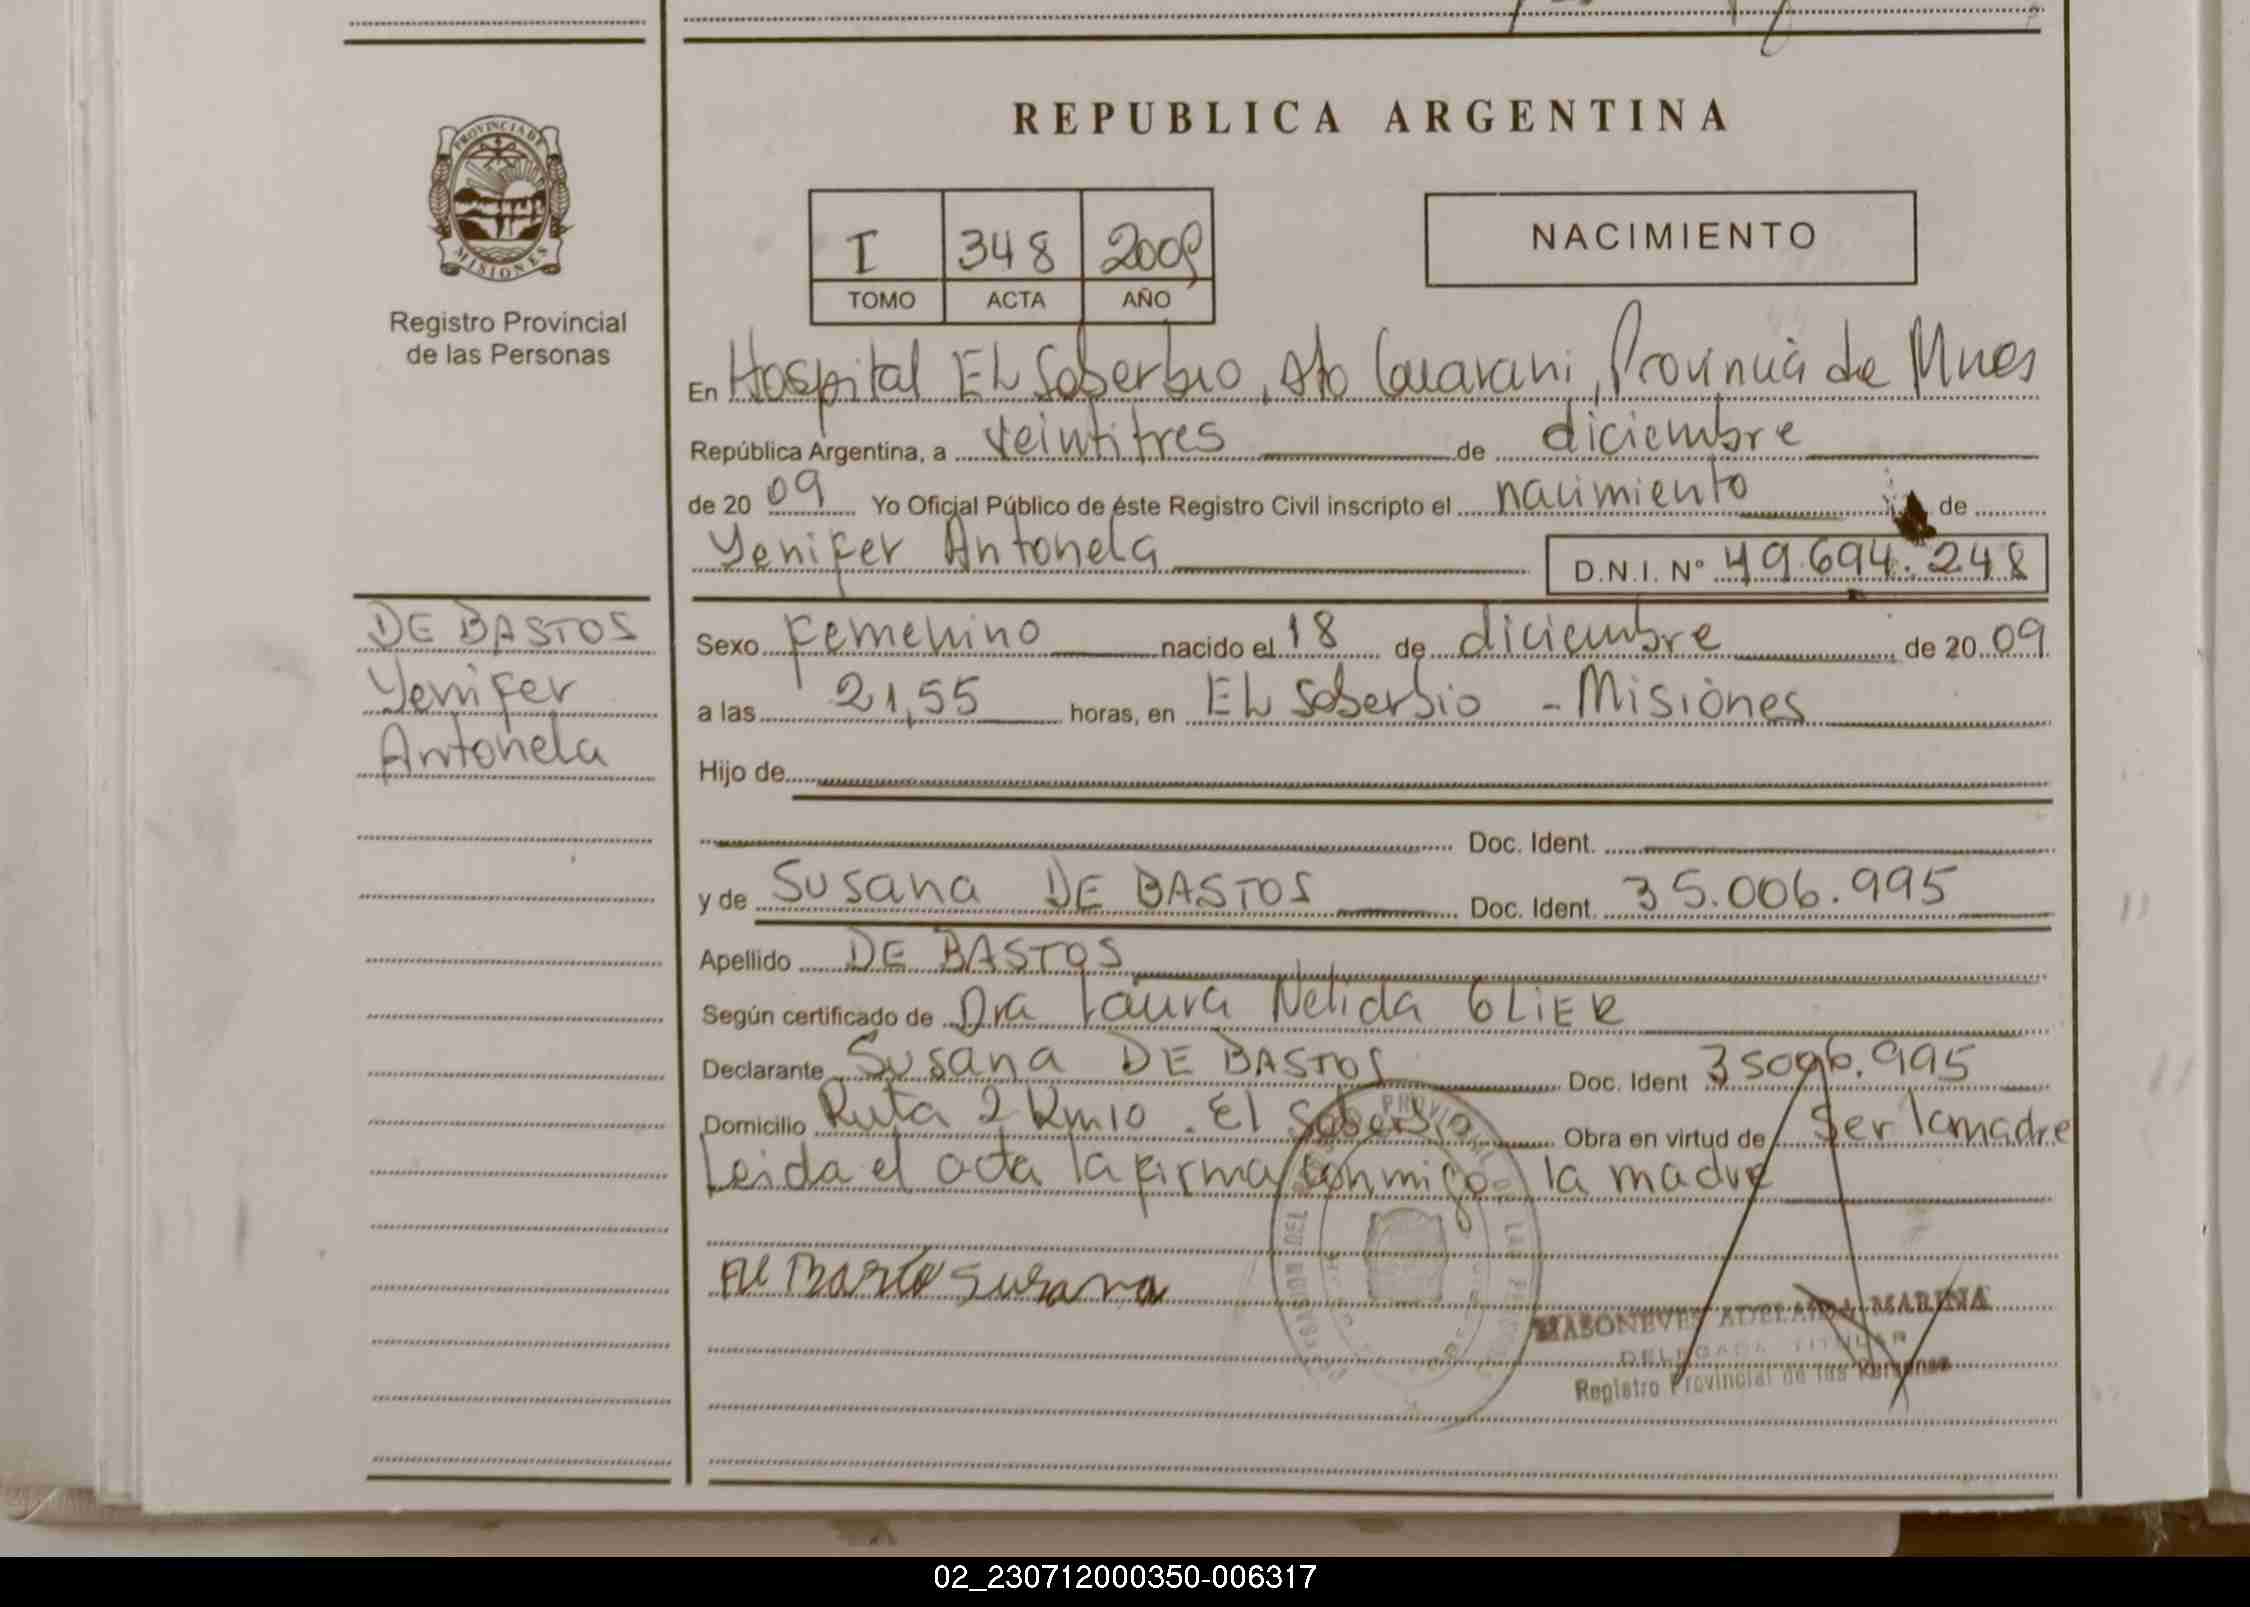 REPUBLICA ARGENTINA
PROVINCIA DE
MISIONES
Registro Provincial
de las Personas
I 348 2009
TOMO ACTA AÑO
NACIMIENTO
En Hospital EL Soberbio, Dto Guarani, Provincia de Mnes
República Argentina, a veintitres de diciembre
de 20 09 Yo Oficial Público de éste Registro Civil inscripto el nacimiento de
Yenifer Antonela D.N.I. Nº 49.694.248
DE BASTOS
Yenifer
Antonela
Sexo Femenino nacido el 18 de diciembre de 20 09
a las 21,55 horas, en EL Soberbio - Misiones
Hijo de
Doc. Ident.
y de Susana DE BASTOS Doc. Ident. 35.006.995
Apellido DE BASTOS
Según certificado de Dra Laura Nelida GLIER
Declarante Susana DE BASTOS Doc. Ident 35006.995
Domicilio Ruta 2 Km10 . El Soberbio Obra en virtud de Ser la madre
Leida el acta la firma conmigo la madre
Susana
MASONEVES ADELAIDA MARINA
DELEGADA TITULAR
Registro Provincial de las Personas
02_230712000350-006317